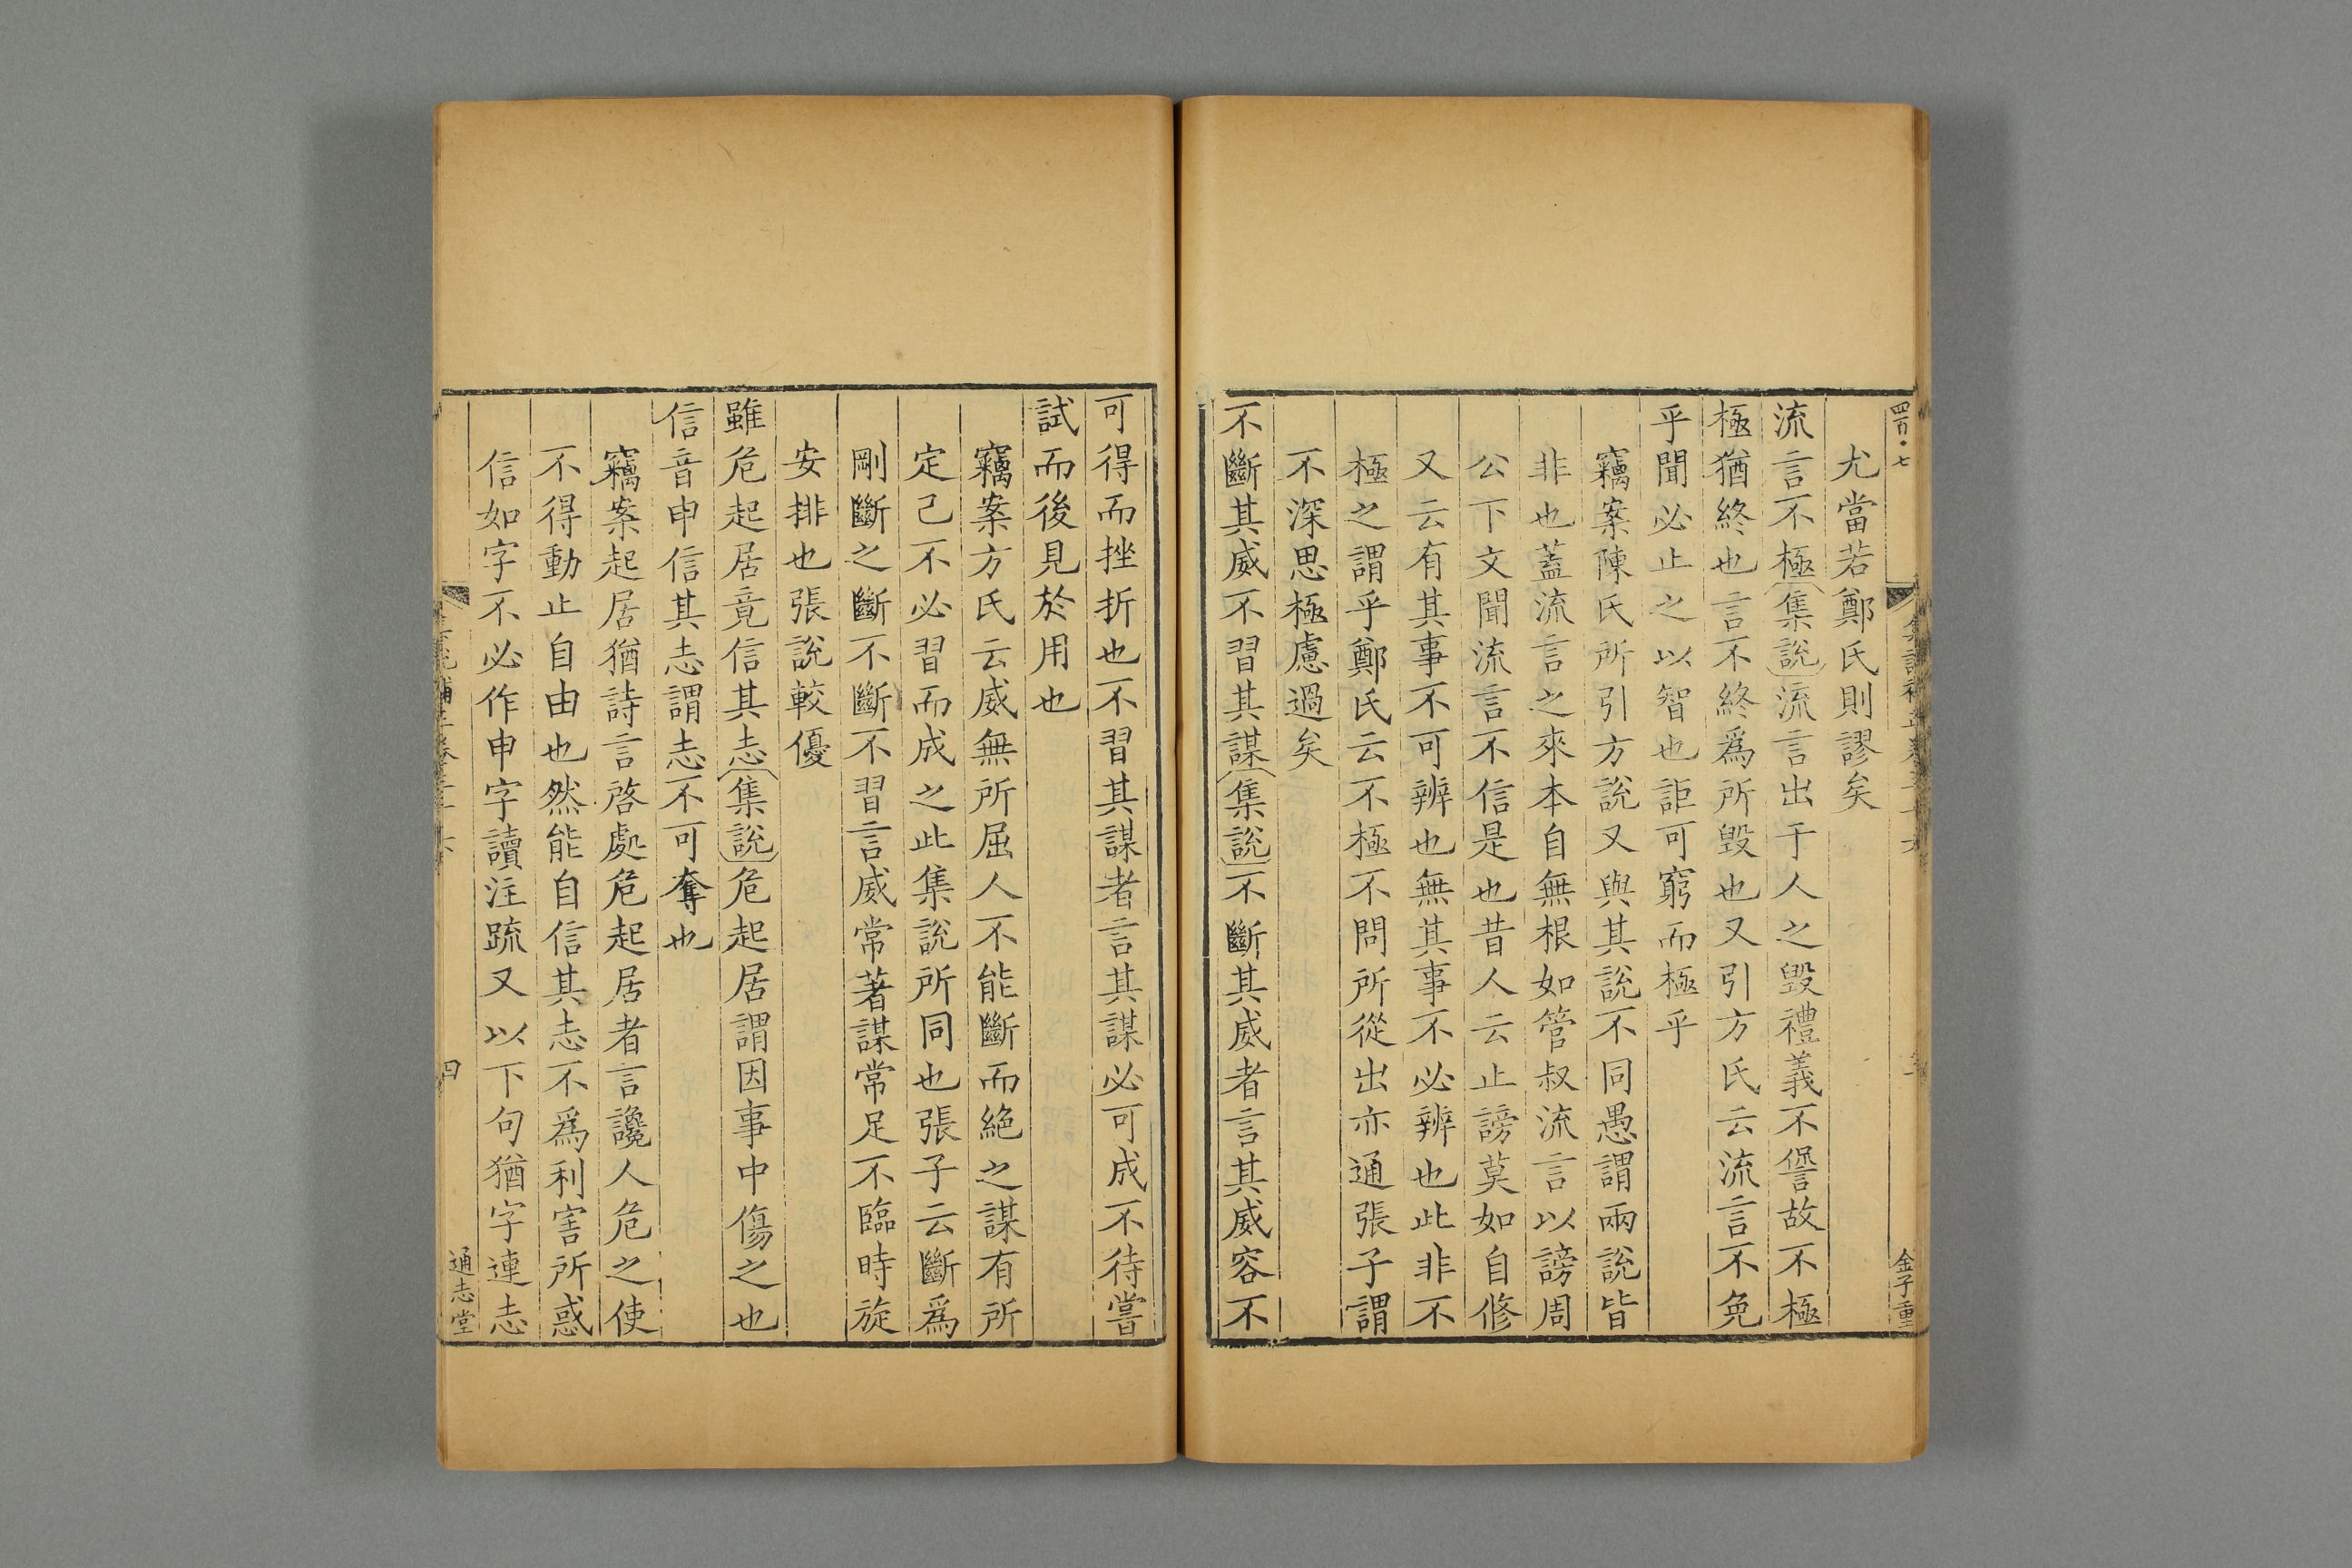 四百·七
金子重
尤當若鄭氏則謬矣
流言不極集説流言出于人之毀禮義不諐故不極
極猶終也言不終爲所毀也又引方氏云流言不免
乎聞必止之以智也詎可窮而極乎
竊案陳氏所引方説又與其説不同愚謂兩説皆
非也蓋流言之來本自無根如管叔流言以謗周
公下文聞流言不信是也昔人云止謗莫如自修
又云有其事不可辨也無其事不必辨也此非不
極之謂乎鄭氏云不極不問所從出亦通張子謂
不深思極慮過矣
不斷其威不習其謀集説不斷其威者言其威容不
可得而挫折也不習其謀者言其謀必可成不待嘗
試而後見於用也
竊案方氏云威無所屈人不能斷而絶之謀有所
定己不必習而成之此集説所同也張子云斷爲
剛斷之斷不斷不習言威常著謀常足不臨時旋
安排也張説較優
雖危起居竟信其志集説危起居謂因事中傷之也
信音申信其志謂志不可奪也
竊案起居猶詩言啓處危起居者言讒人危之使
不得動止自由也然能自信其志不爲利害所惑
信如字不必作申字讀注疏又以下句猶字連志
四
通志堂